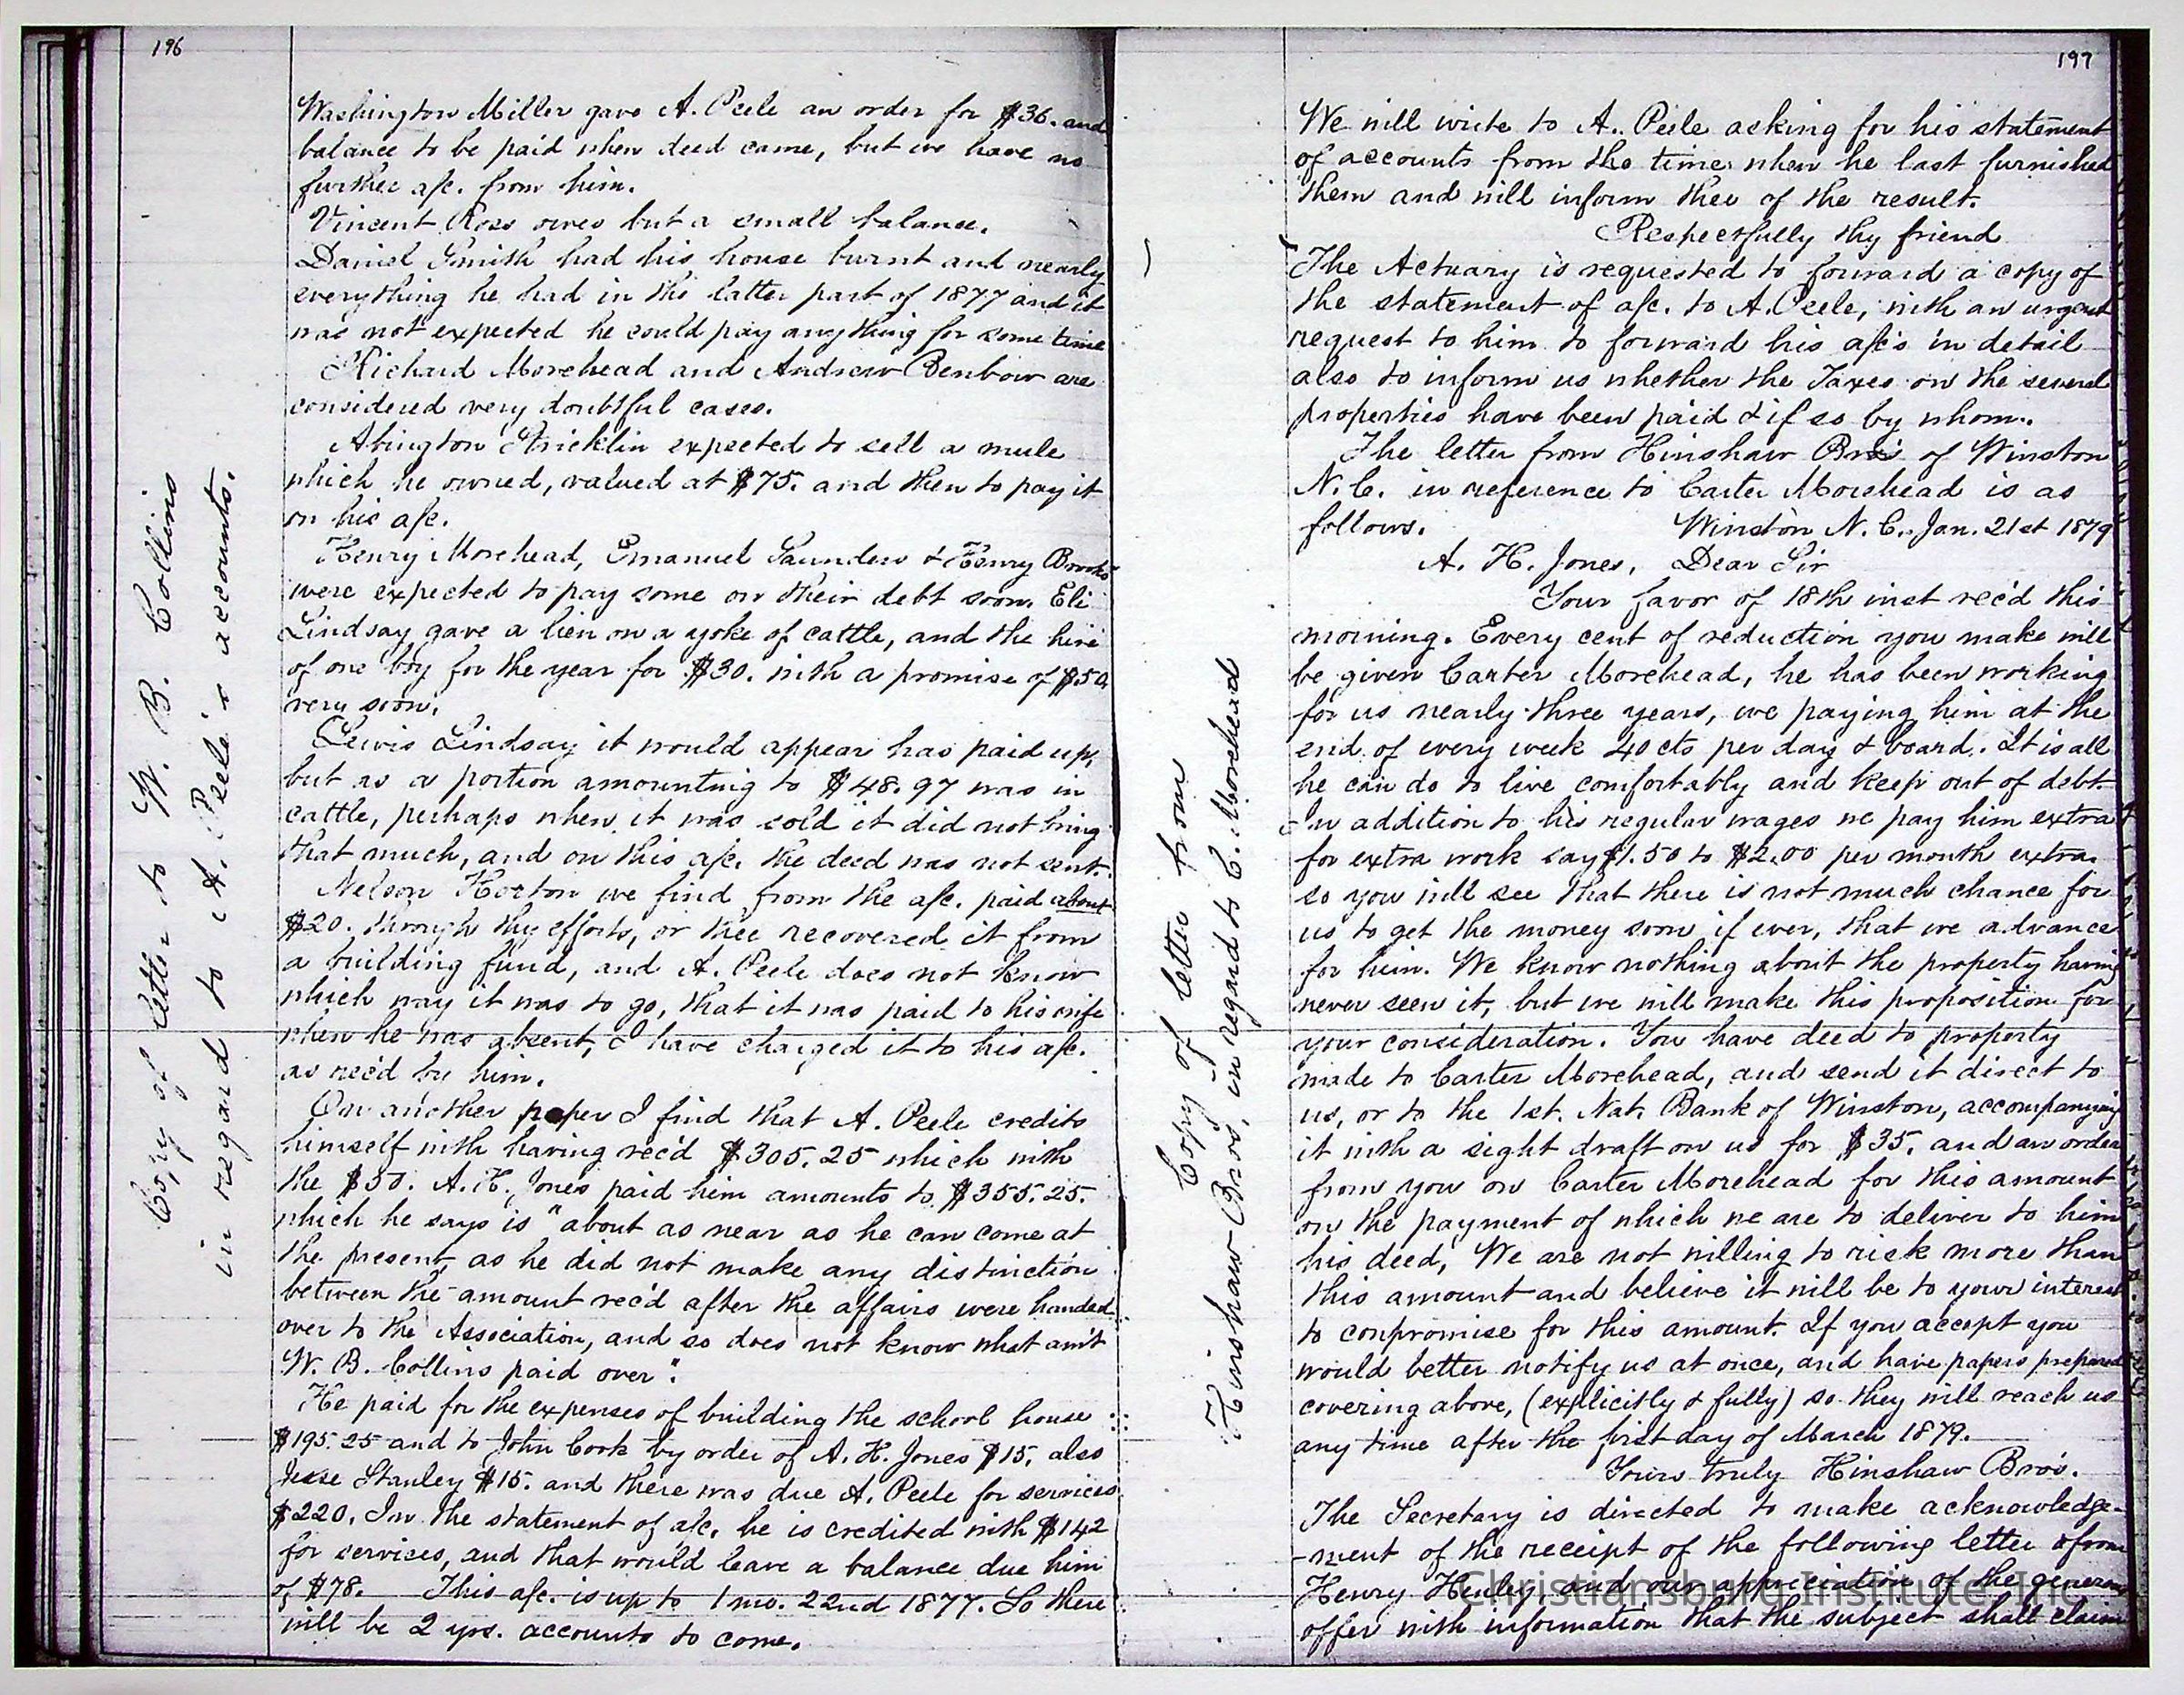 196
Copy of letter to W. B. Collins
in regard to A. Peele's accounts.
Washington Miller gave A. Peele an order for $36. and
balance to be paid when deed came, but we have no
further a/c. from him.
Vincent Ross owes but a small balance.
Daniel Smith had his house burnt and nearly
everything he had in the latter part of 1877 and it
was not expected he could pay anything for some time
Richard Morehead and Andrew Benbow are
considered very doubtful cases.
Abington Stricklin expected to sell a mule
which he owned, valued at $75. and then to pay it
on his a/c.
Henry Morehead, Emanuel Saunders & Henry Brooks
were expected to pay some on their debt soon. Eli
Lindsay gave a lien on a yoke of cattle, and the hire
of one boy for the year for $30. with a promise of $50.
very soon.
Lewis Lindsay it would appear has paid up,
but as a portion amounting to $48.97 was in
cattle, perhaps when it was sold it did not bring
that much, and on this a/c. the deed was not sent.
Nelson Horton we find from the a/c. paid about
$20. through thy efforts, or thee recovered it from
a building fund, and A. Peele does not know
which way it was to go, that it was paid to his wife
when he was absent, I have charged it to his a/c.
as rec'd by him.
On another paper I find that A. Peele credits
himself with having rec'd $305.25 which with
the $50. A. H. Jones paid him amounts to $355.25.
which he says is "about as near as he can come at
the present, as he did not make any distinction
between the amount rec'd after the affairs were handed
over to the Association, and so does not know what am't
W. B. Collins paid over".
He paid for the expenses of building the school house
$195.25 and to John Cook by order of A. H. Jones $15. also
Jesse Stanley $15. and there was due A. Peele for services
$220. In the statement of a/c. he is credited with $142
for services, and that would leave a balance due him
of $78. This a/c. is up to 1 mo. 22nd 1877. So there
will be 2 yrs. accounts to come.
197
Copy of letter from
Hinshaw Bros, in regard to C. Morehead
We will write to A. Peele asking for his statement
of accounts from the time when he last furnished
them and will inform thee of the result.
Respectfully thy friend
The Actuary is requested to forward a copy of
the statement of a/c. to A. Peele, with an urgent
request to him to forward his a/c's in detail
also to inform us whether the Taxes on the several
properties have been paid & if so by whom.
The letter from Hinshaw Bros of Winston
N.C. in reference to Carter Morehead is as
follows. Winston N.C. Jan. 21st 1879
A. H. Jones, Dear Sir
Your favor of 18th inst rec'd this
morning. Every cent of reduction you make will
be given Carter Morehead, he has been working
for us nearly three years, we paying him at the
end of every week 40 cts per day & board. It is all
he can do to live comfortably and keep out of debt.
In addition to his regular wages we pay him extra
for extra work say $1.50 to $2.00 per month extra.
so you will see that there is not much chance for
us to get the money soon if ever, that we advance
for him. We know nothing about the property having
never seen it, but we will make this proposition for
your consideration. You have deed to property
made to Carter Morehead, and send it direct to
us, or to the 1st. Nat. Bank of Winston, accompanying
it with a sight draft on us for $35. and an order
from you on Carter Morehead for this amount
on the payment of which we are to deliver to him
his deed, We are not willing to risk more than
this amount and believe it will be to your interest
to conpromise for this amount. If you accept you
would better notify us at once, and have papers prepared
covering above, (explicitly & fully) so they will reach us
any time after the first day of March 1879.
Yours truly Hinshaw Bros.
The Secretary is directed to make acknowledge-
-ment of the receipt of the following letter from
Henry Henley and our appreciation of the generous
offer with information that the subject shall claim
Christiansburg Institute, Inc.